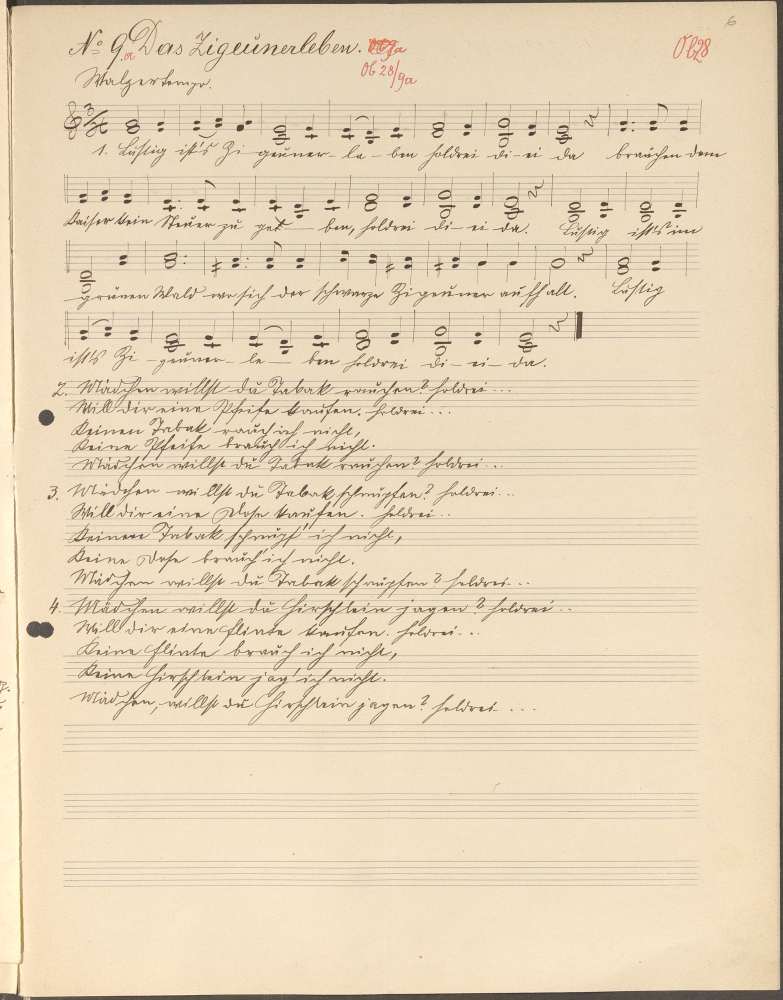 6
No 9.a Das Zigeunerleben.
Ob 28
Ob 28/9a
Walzertempo.
3/4
1. Lustig ist's Zi-geuner-le-ben holdrei di-ei da brauchen dem
Kaiser kein Steuer zu geb-ben, holdrei di-ei da. Lustig ist's im
grünen Wald wo sich der schwarze Zigeuner aufhalt. Lustig
ist's Zi-geuner-le-ben holdrei di-ei-da.
2. Mädchen willst du Tabak rauchen? holdrei...
Will dir eine Pfeife kaufen. holdrei...
Keinen Tabak rauch ich nicht,
Keine Pfeife brauch ich nicht.
Mädchen willst du Tabak rauchen? holdrei...
3. Mädchen willst du Tabak schnupfen? holdrei...
Will dir eine Dose kaufen. holdrei..
Keinen Tabak schnupf' ich nicht,
Keine Dose brauch' ich nicht.
Mädchen willst du Tabak schnupfen? holdrei...
4. Mädchen willst du Hirschlein jagen? holdrei..
Will dir eine Flinte kaufen. holdrei...
Keine Flinte brauch ich nicht,
Keine Hirschlein jag' ich nicht.
Mädchen, willst du Hirschlein jagen? holdrei ...